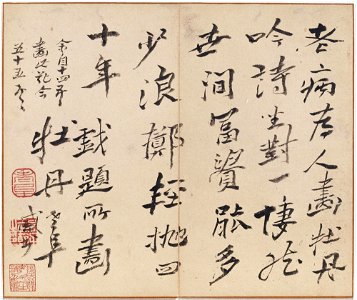 老病為人畫牡丹
吟詩坐對一悽然
世間富貴能多
少浪擲輕拋四
十年 戲題所畫
牡丹
余自十四年
畫此花今
五十五